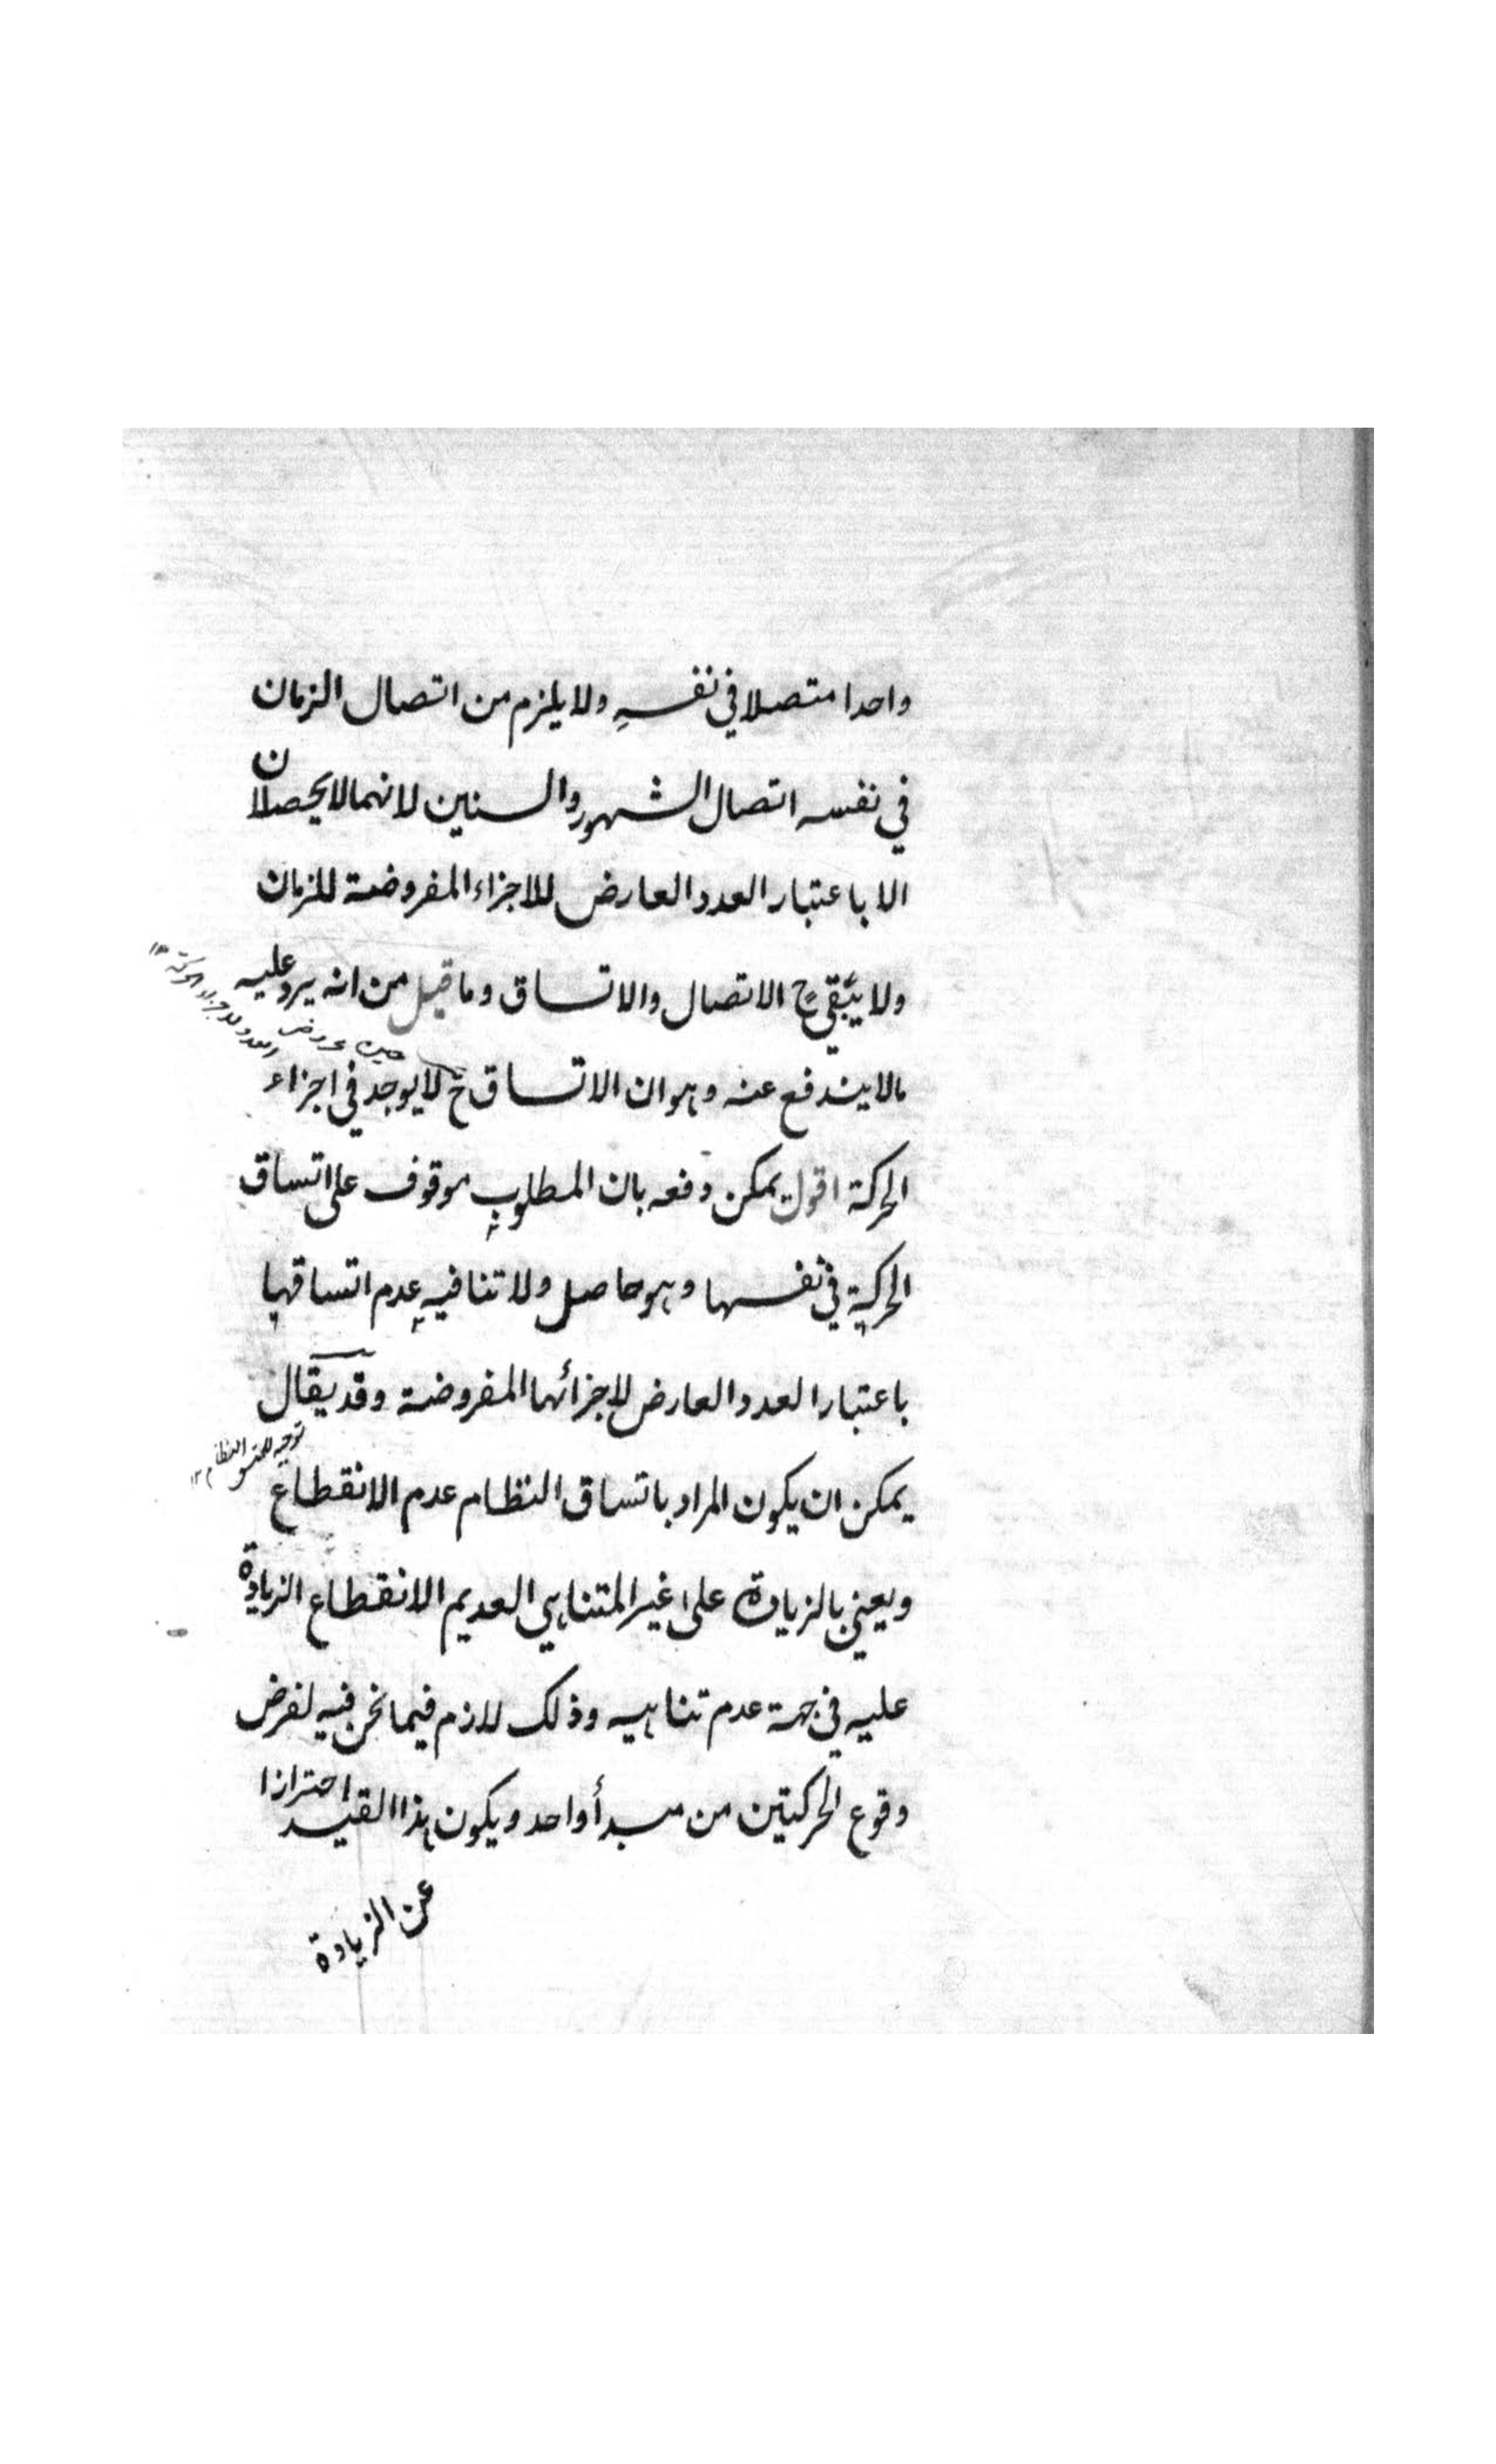 واحدا متصلا في نفسه ولا يلزم من اتصال الزمان
في نفسه اتصال الشهور والسنين لانهما لا يحصلان
الا باعتبار العدد العارض للاجزاء المفروضة للزمان
ولا يبقي ح الاتصال والاتساق وما قيل من انه يرد عليه
حين عروض العدد لاجزاء الحركة ١٢
مالا يندفع عنه وهو ان الاتساق ح لا يوجد في اجزاء
الحركة اقول يمكن دفعه بان المطلوب موقوف على اتساق
الحركة في نفسها وهو حاصل ولا تنافيه عدم اتساقها
باعتبار العدد العارض لاجزائها المفروضة وقد يقال
توجيه النظام ١٢
يمكن ان يكون المراد باتساق النظام عدم الانقطاع
ويعني بالزيادة على غير المتناهي العديم الانقطاع الزيادة
عليه في جهة عدم تناهيه وذلك لازم فيما نحن فيه لفرض
وقوع الحركتين من مبدأ واحد ويكون هذا القيد احترازا
عن الزيادة